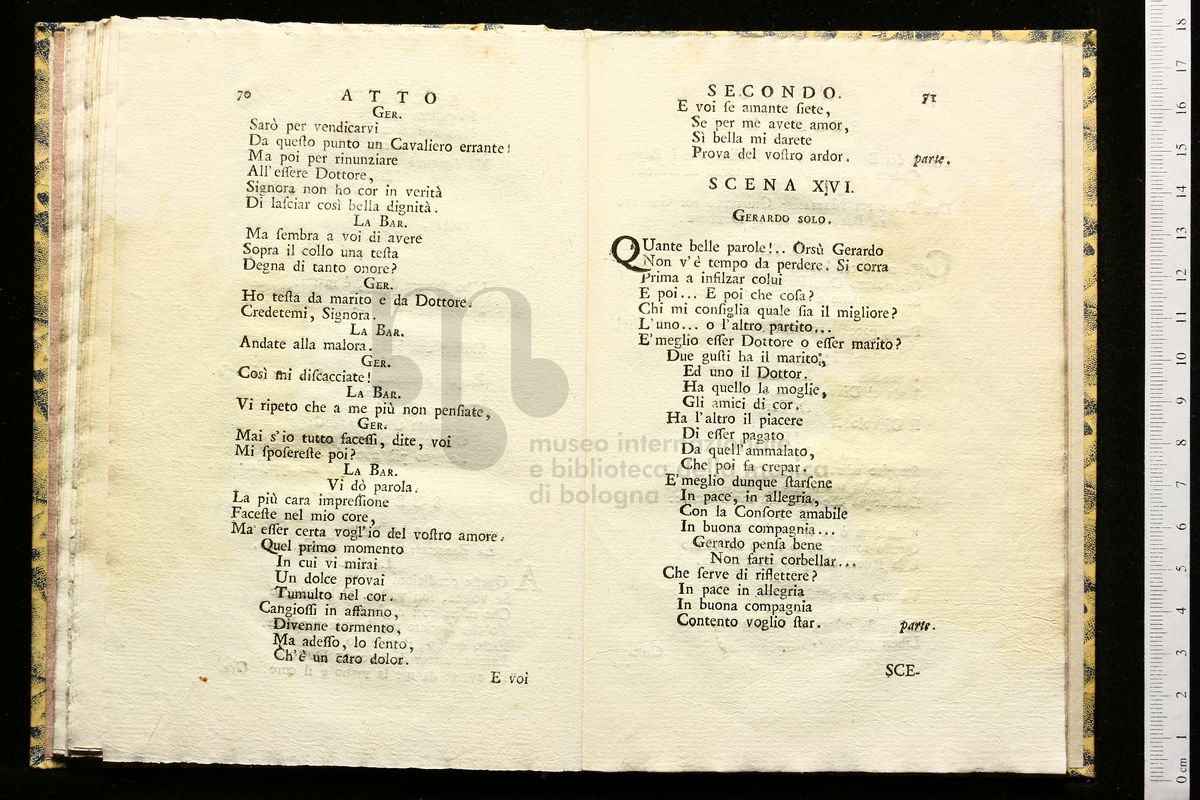 70 ATTO
GER.
Sarò per vendicarvi
Da queſto punto un Cavaliero errante:
Ma poi per rinunziare
All'eſſere Dottore,
Signora non ho cor in verità
Di laſciar così bella dignità.
LA BAR.
Ma ſembra a voi di avere
Sopra il collo una teſta
Degna di tanto onore?
GER.
Ho teſta da marito e da Dottore.
Credetemi, Signora.
LA BAR.
Andate alla malora.
GER.
Così mi diſcacciate!
LA BAR.
Vi ripeto che a me più non penſiate,
GER.
Mai s'io tutto faceſſi, dite, voi
Mi ſpoſereſte poi?
LA BAR.
Vi dò parola.
La più cara impreſſione
Faceſte nel mio core,
Ma eſſer certa vogl'io del voſtro amore.
Quel primo momento
In cui vi mirai
Un dolce provai
Tumulto nel cor.
Cangioſſi in affanno,
Divenne tormento,
Ma adeſſo, lo ſento,
Ch'è un caro dolor.
E voi
SECONDO. 71
E voi ſe amante ſiete,
Se per me avete amor,
Sì bella mi darete
Prova del voſtro ardor. parte.
SCENA XVI.
GERARDO SOLO.
QUante belle parole!.. Orsù Gerardo
Non v'è tempo da perdere. Si corra
Prima a infilzar colui
E poi... E poi che coſa?
Chi mi conſiglia quale ſia il migliore?
L'uno... o l'altro partito...
E' meglio eſſer Dottore o eſſer marito?
Due guſti ha il marito;
Ed uno il Dottor.
Ha quello la moglie,
Gli amici di cor.
Ha l'altro il piacere
Di eſſer pagato
Da quell'ammalato,
Che poi fa crepar.
E' meglio dunque ſtarſene
In pace, in allegria,
Con la Conſorte amabile
In buona compagnia...
Gerardo penſa bene
Non farti corbellar...
Che ſerve di riflettere?
In pace in allegria
In buona compagnia
Contento voglio ſtar. parte.
SCE-
museo internazionale
e biblioteca della musica
di bologna
0 cm 1 2 3 4 5 6 7 8 9 10 11 12 13 14 15 16 17 18